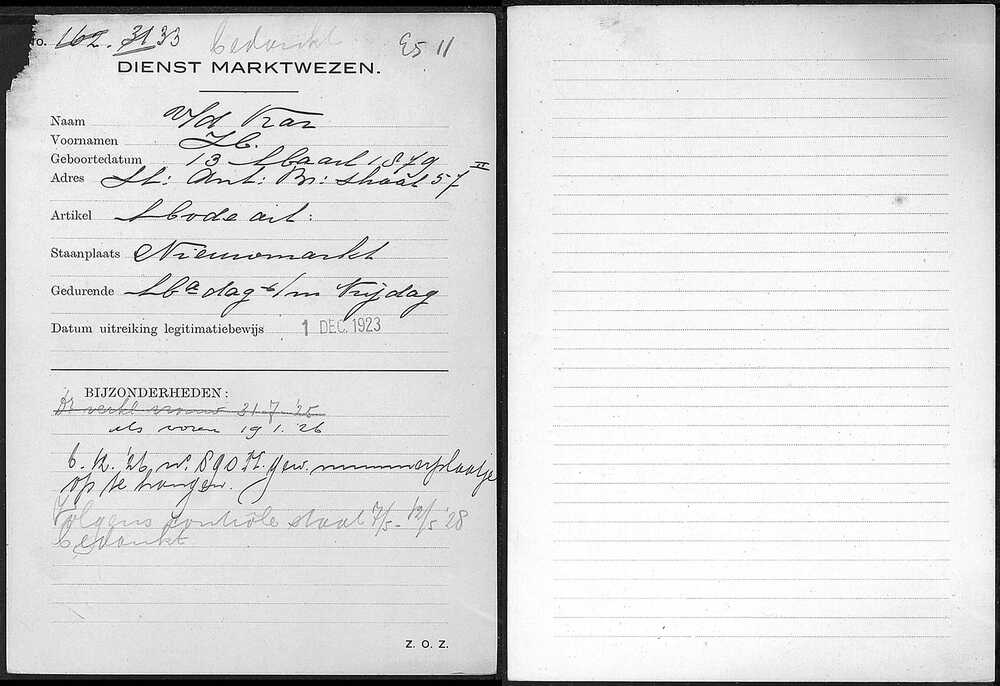 No. 162. 31 33 bedankt E5 11
DIENST MARKTWEZEN.
Naam v/d Kar
Voornamen
Geboortedatum 13 Maart 1879
Adres St: Ant: Br: straat 57 II
Artikel Mode art:
Staanplaats Nieuwmarkt
Gedurende Ma dag t/m Vrijdag
Datum uitreiking legitimatiebewijs 1 DEC. 1923
BIJZONDERHEDEN:
Dr verkl vrouw 31-7-'25
als voren 19 1. '26
6. 12. '26 gew. nummerplaatje
op te hangen.
Volgens controle staat 7/5 - 12/5 '28
bedankt
Z. O. Z.